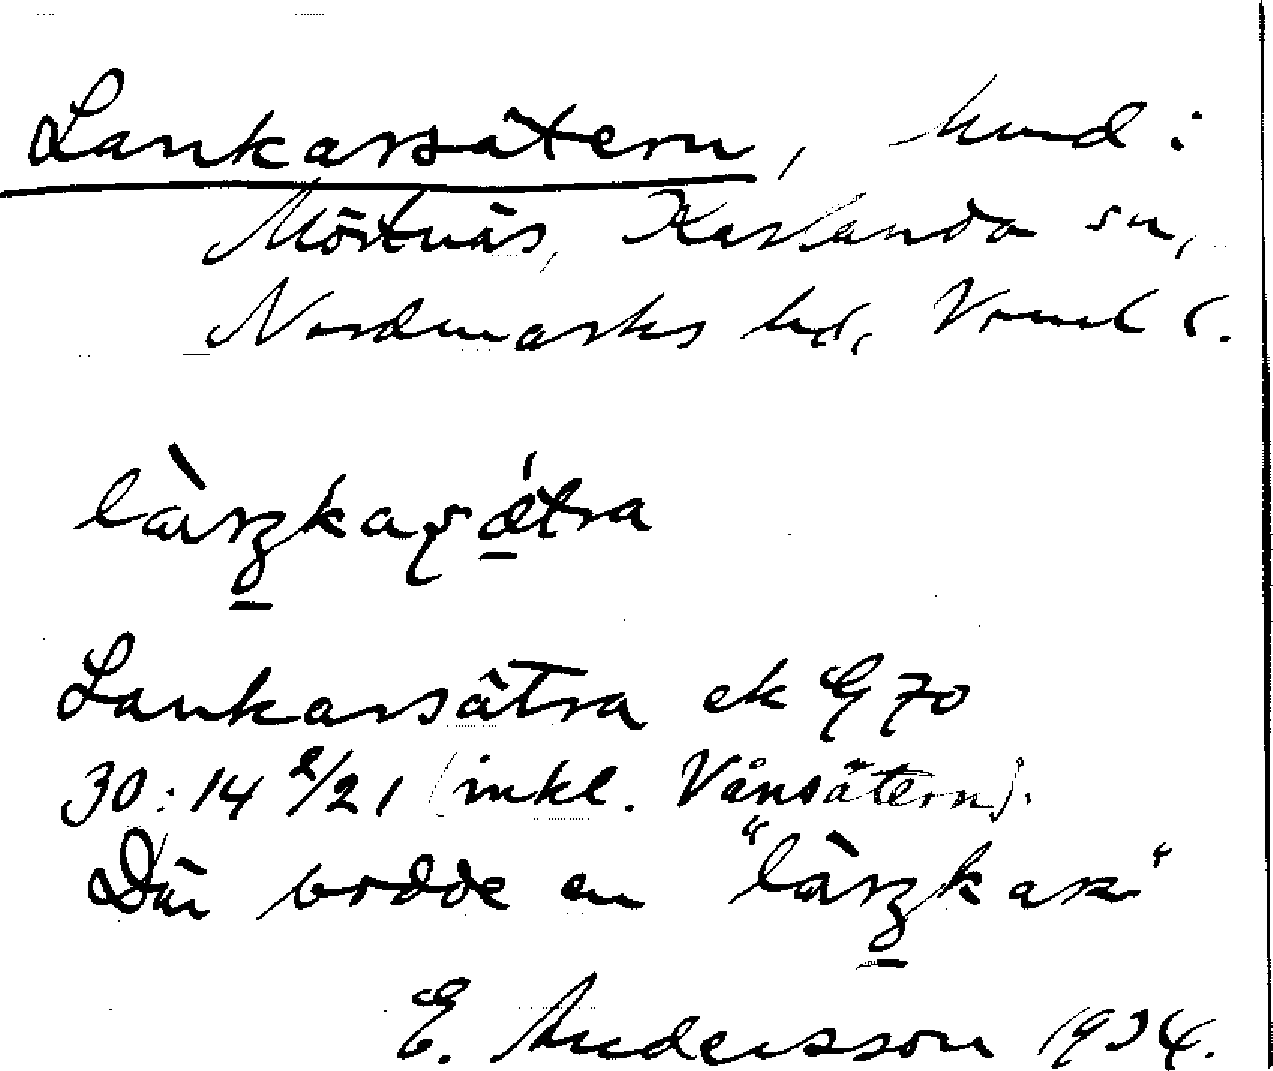 Lankarsätern, hmd i
Mörtnäs, Karlanda sn,
Nordmarks hd, Vrml l.
Lankarsätra ek G 70
30:14 2/21 (inkl. Vånsätern).
Där bodde en
E. Andersson 1934.